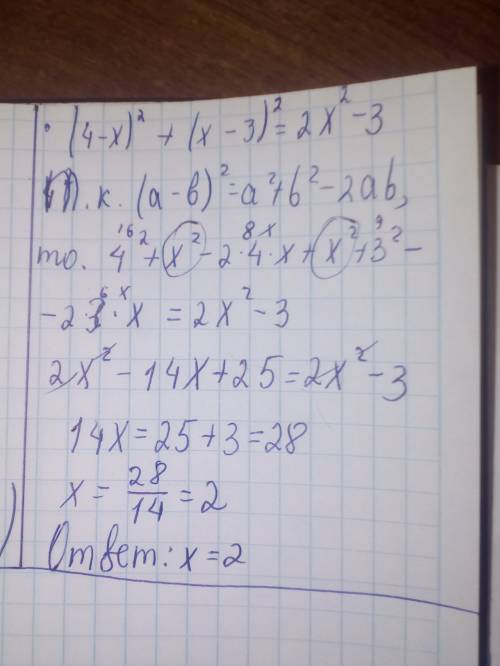 (4-x)² + (x-3)² = 2x² - 3
Т.к. (a-b)² = a² + b² - 2ab,
16 8x 9
то. 4² + x² - 2·4·x + x² + 3² -
6x
-2·3·x = 2x² - 3
2x² - 14x + 25 = 2x² - 3
14x = 25 + 3 = 28
x = 28/14 = 2
Ответ: x = 2